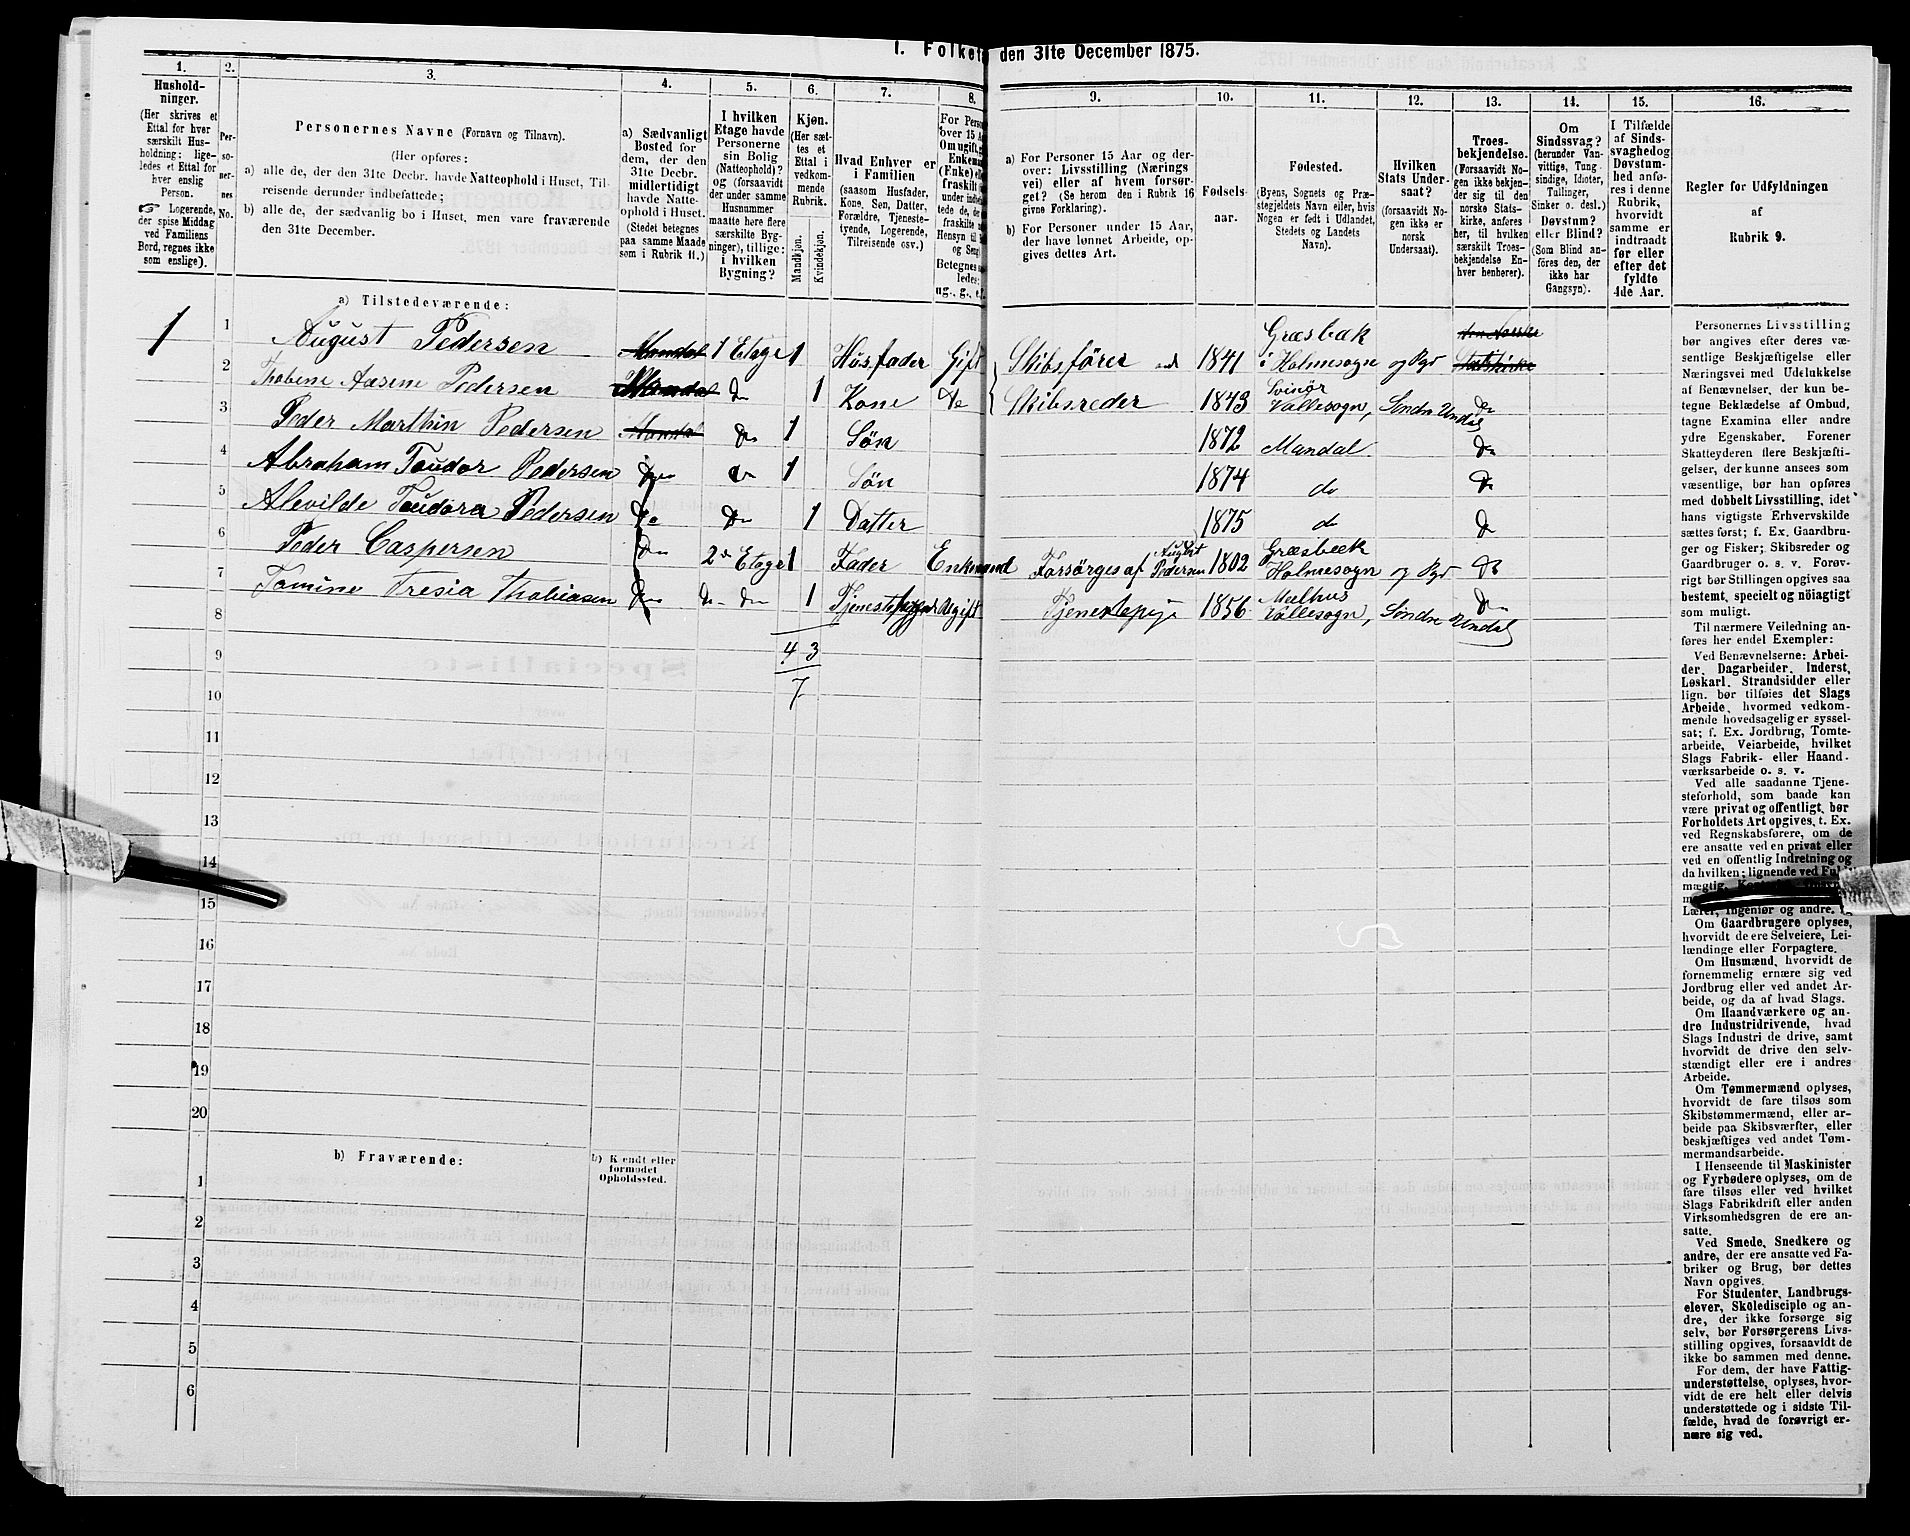 I. Folket den 31te December 1875.
1. 2. 3. 4. 5. 6. 7. 8. 9. 10. 11. 12. 13. 14. 15. 16.
Hushold-
ninger.
(Her skrives et
Ettal for hver
særskilt Hus-
holdning; lige-
ledes et Ettal for
hver enslig
Person.
☞ Logerende,
der spise Middag
ved Familiens
Bord, regnes ikke
som enslige).
Per-
so-
ner-
nes
No.
Personernes Navne (Fornavn og Tilnavn).
(Her opføres:
a) alle de, der den 31te Decbr. havde Natteophold i Huset, Til-
reisende derunder indbefattede;
b) alle de, der sædvanlig bo i Huset, men vare fraværende
den 31te December.
a) Sædvanligt
Bosted for
dem, der den
31te Decbr.
midlertidigt
havde Natte-
ophold i Huset.
(Stedet betegnes
paa samme Maade
som i Rubrik 11.)
I hvilken
Etage havde
Personerne
sin Bolig
(Natteophold)?
og (forsaavidt
der under samme
Husnummer
maatte høre flere
særskilte Byg-
ninger), tillige:
i hvilken
Bygning?
Kjøn.
(Her sæt-
tes et
Ettal i
vedkom-
mende
Rubrik.
Mandkjøn.
Kvindekjøn.
Hvad Enhver er
i Familien
(saasom Husfader,
Kone, Søn, Datter,
Forældre, Tjeneste-
tyende, Logerende,
Tilreisende osv.)
For Perso
over 15 Aa
Om ugift, g
Enkem
(Enke) el
fraskilt
under indb
tede de, d
fraskilte
Hensyn til
og Seng
Betegnes
ledes:
ug., g., e.
a) For Personer 15 Aar og der-
over: Livsstilling (Nærings
vei) eller af hvem forsør-
get? (Se herom den i Rubrik 16
givne Forklaring).
b) For Personer under 15 Aar,
der have lønnet Arbeide, op-
gives dettes Art.
Fødsels-
aar.
Fødested.
(Byens, Sognets og Præ-
stegjeldets Navn eller, hvis
Nogen er født i Udlandet,
Stedets og Landets
Navn).
Hvilken
Stats Under-
saat?
(forsaavidt No-
gen ikke er
norsk
Undersaat).
Troes-
bekjendelse.
(Forsaavidt No-
gen ikke bekjen-
der sig til den
norske Stats-
kirke, anføres
her, til hvilken
særskilt Troes-
bekjendelse En-
hver henhører).
Om
Sindssvag?
(herunder Van-
vittige, Tung-
sindige, Idioter,
Tullinger,
Sinker o. desl.)
Døvstum?
eller Blind?
(Som Blind an-
føres den, der
ikke har
Gangsyn).
I Tilfælde
af Sinds-
svaghed og
Døvstum-
hed anfø-
res i denne
Rubrik,
hvorvidt
samme er
indtraadt
før eller
efter det
fyldte
4de Aar.
Regler for Udfyldningen
af
Rubrik 9.
a) Tilstedeværende:
1 1 August Pedersen Mandal 1 Etage 1 Husfader Gift Skibsfører 1841 Græsbæk i Holmesogn den norske Statskirke
2 Thobene Aasene Pedersen Mandal do 1 Kone do Skibsreder 1843 Svinør Vallesogn, Søndre Undal do
3 Peder Marthin Pedersen Mandal do 1 Søn 1872 Mandal do
4 Abraham Teodor Pedersen do do 1 Søn 1874 do do
5 Alevilde Teudora Pedersen do do 1 Datter 1875 do do
6 Peder Caspersen do 2 Etage 1 Fader Enkemand Forsørges af August Pedersen 1802 Græsbæk Holmesogn do
7 Tomine Tresia Thobiasen do do do 1 Ugift Tjenestepige 1856 Vallesogn, Søndre Undal do
8
9 4 3
10 7
11
12
13
14
15
16
17
18
19
20
b) Fraværende:
b) Kendt eller
formodet
Opholdssted.
1
2
3
4
5
6
Personernes Livsstilling
bør angives efter deres væ-
sentlige Beskjæftigelse eller
Næringsvei med Udelukkelse
af Benævnelser, der kun be-
tegne Beklædelse af Ombud,
tagne Examina eller andre
ydre Egenskaber. Forener
Skatteyderen flere Beskjæfti-
gelser, der kunne ansees som
væsentlige, bør han opføres
med dobbelt Livsstilling, idet
hans vigtigste Erhvervskilde
sættes først; f. Ex. Gaardbru-
ger og Fisker; Skibsreder og
Gaardbruger o. s. v. Forøv-
rigt bør Stillingen opgives saa
bestemt, specielt og nöiagtigt
som muligt.
Til nærmere Veiledning an-
føres her endel Exempler:
Ved Benævnelserne: Arbei-
der, Dagarbeider, Inderst,
Løskarl, Strandsidder eller
lign. bør tilføies det Slags
Arbeide, hvormed vedkom-
mende hovedsageliger syssel-
sat; f. Ex. Jordbrug, Tomte-
arbeide, Veiarbeide, hvilket
Slags Fabrik- eller Haand-
værksarbeide o. s. v.
Ved alle saadanne Tjene-
steforhold, som baade kan
være privat og offentligt, bør
Forholdets Art opgives, t. Ex.
ved Regnskabsførere, om de
ere ansatte ved en privat eller
ved en offentlig Indretning og
da hvilken; lignende ved
Lærer, Ingeniør og andre.
Om Gaardbrugere oplyses,
hvorvidt de ere Selveiere, Lei-
lændinge eller Forpagtere.
Om Husmænd, hvorvidt de
fornemmelig ernære sig ved
Jordbrug eller ved andet Ar-
beide, og da af hvad Slags.
Om Haandværkere og an-
dre Industridrivende, hvad
Slags Industri de drive, samt
hvorvidt de drive den selv-
stændigt eller ere i andres
Arbeide.
Om Tømmermænd oplyses,
hvorvidt de fare tilsøs som
Skibstømmermænd, eller ar-
beide paa Skibsværfter, eller
beskjæftiges ved andet Tøm-
mermandsarbeide.
I Henseende til Maskinister
og Fyrbødere oplyses, om de
fare tilsøs eller ved hvilket
Slags Fabrikdrift eller anden
Virksomhedsgren de ere an-
satte.
Ved Smede, Snedkere og
andre, der ere ansatte ved Fa-
briker og Brug, bør dettes
Navn opgives.
For Studenter, Landbrugs-
elever, Skoledisciple og an-
dre, der ikke forsørge sig
selv, bør Forsørgerens Livs-
stilling opgives, forsaavidt de
ikke bo sammen med denne.
For dem, der have Fattig-
understøttelse, oplyses, hvor-
vidt de ere helt eller delvis
understøttede og i sidste Til-
fælde, hvad de forøvrigt er-
nære sig ved.